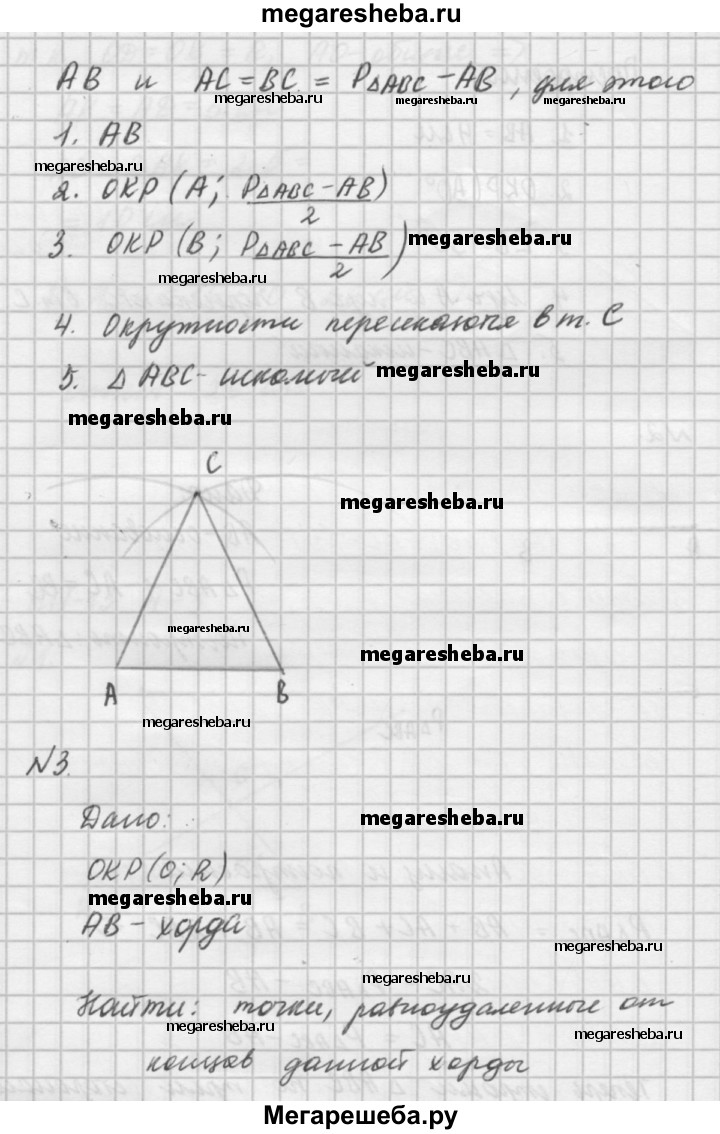 megaresheba.ru
AB и AC = BC = P△ABC − AB, для этого
megaresheba.ru megaresheba.ru megaresheba.ru
1. AB
megaresheba.ru
2. ОКР (A; P△ABC − AB / 2)
3. ОКР (B; P△ABC − AB / 2) megaresheba.ru
megaresheba.ru
4. Окружности пересекаются в т. C
5. △ ABC - искомый megaresheba.ru
megaresheba.ru
C
megaresheba.ru
megaresheba.ru
megaresheba.ru
A B
megaresheba.ru
№3.
Дано: megaresheba.ru
ОКР (O; R)
megaresheba.ru
AB - хорда
megaresheba.ru
megaresheba.ru
Найти: точки, равноудаленные от
megaresheba.ru megaresheba.ru
концов данной хорды
Мегарешеба.ру